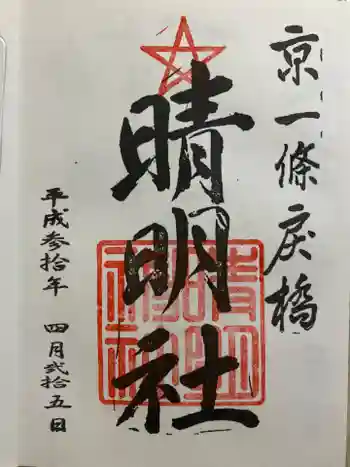 京一條戻橋
晴明社
平成参拾年 四月弐拾五日